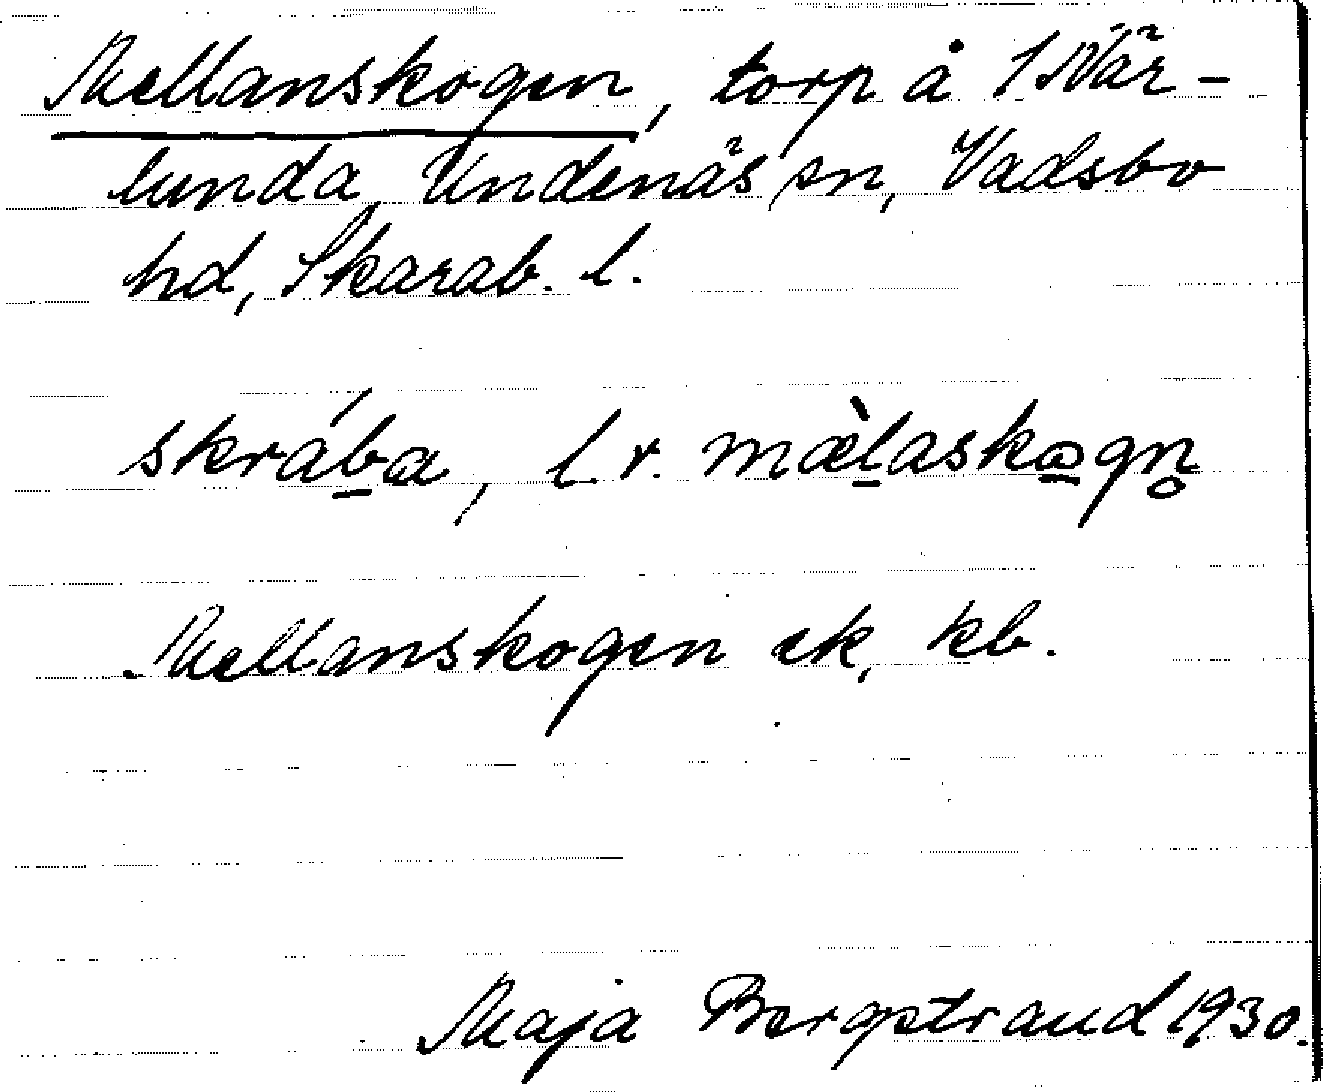 Mellanskogen, torp å 1 När-
lunda, Undenäs sn, Vadsbo
hd, Skarab. l.
skrába, l. r. mæ̀laskogn̥
Mellanskogen ek, kb.
Maja Bergstrand 1930.